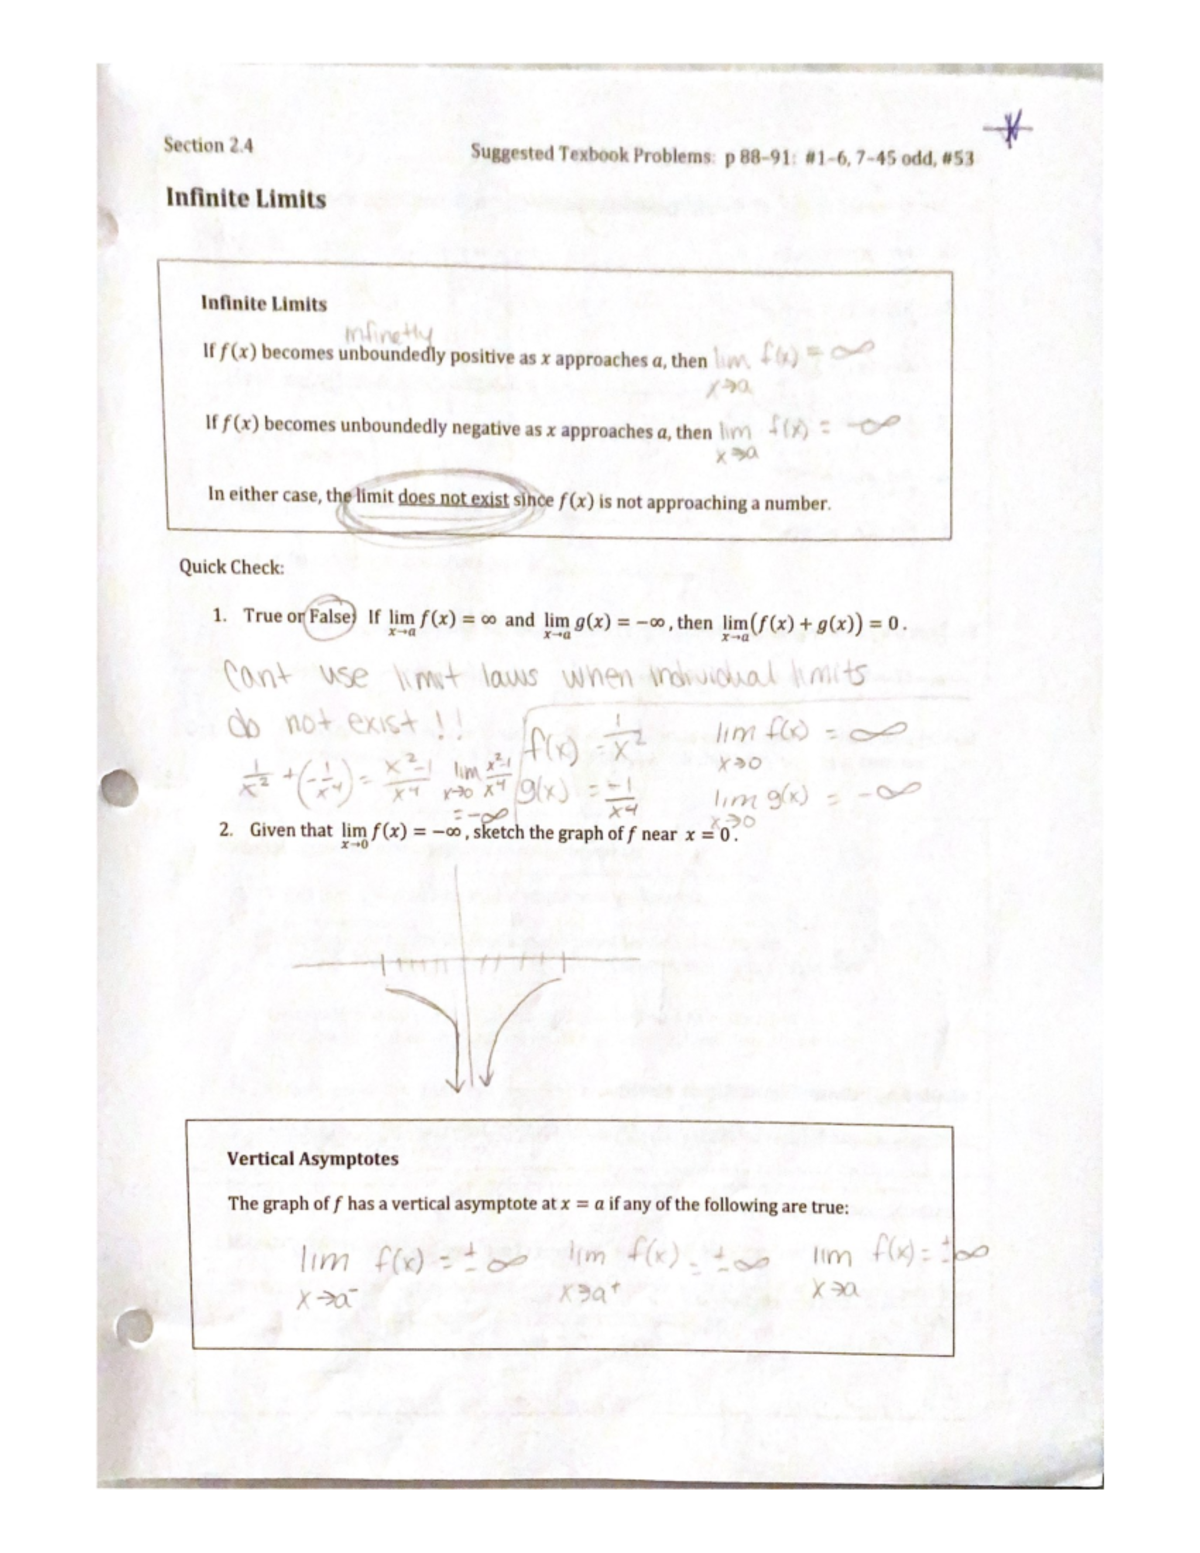 Section 2.4
Suggested Texbook Problems: p 88-91: #1-6, 7-45 odd, #53
Infinite Limits
Infinite Limits
infinetly
If f(x) becomes unboundedly positive as x approaches a, then lim f(x) = ∞
x→a
If f(x) becomes unboundedly negative as x approaches a, then lim f(x) = -∞
x→a
In either case, the limit does not exist since f(x) is not approaching a number.
Quick Check:
1. True or False) If lim x→a f(x) = ∞ and lim x→a g(x) = −∞, then lim x→a (f(x) + g(x)) = 0.
Cant use limit laws when individual limits
do not exist!!
f(x) = 1/x² lim f(x) = ∞
x→0
1/x² + (-1/x⁴) = x²-1/x⁴ lim x→0 x²-1/x⁴ = -∞
g(x) = -1/x⁴ lim g(x) = -∞
x→0
2. Given that lim x→0 f(x) = −∞, sketch the graph of f near x = 0.
Vertical Asymptotes
The graph of f has a vertical asymptote at x = a if any of the following are true:
lim f(x) = ±∞ lim f(x) = ±∞ lim f(x) = ±∞
x→a⁻ x→a⁺ x→a